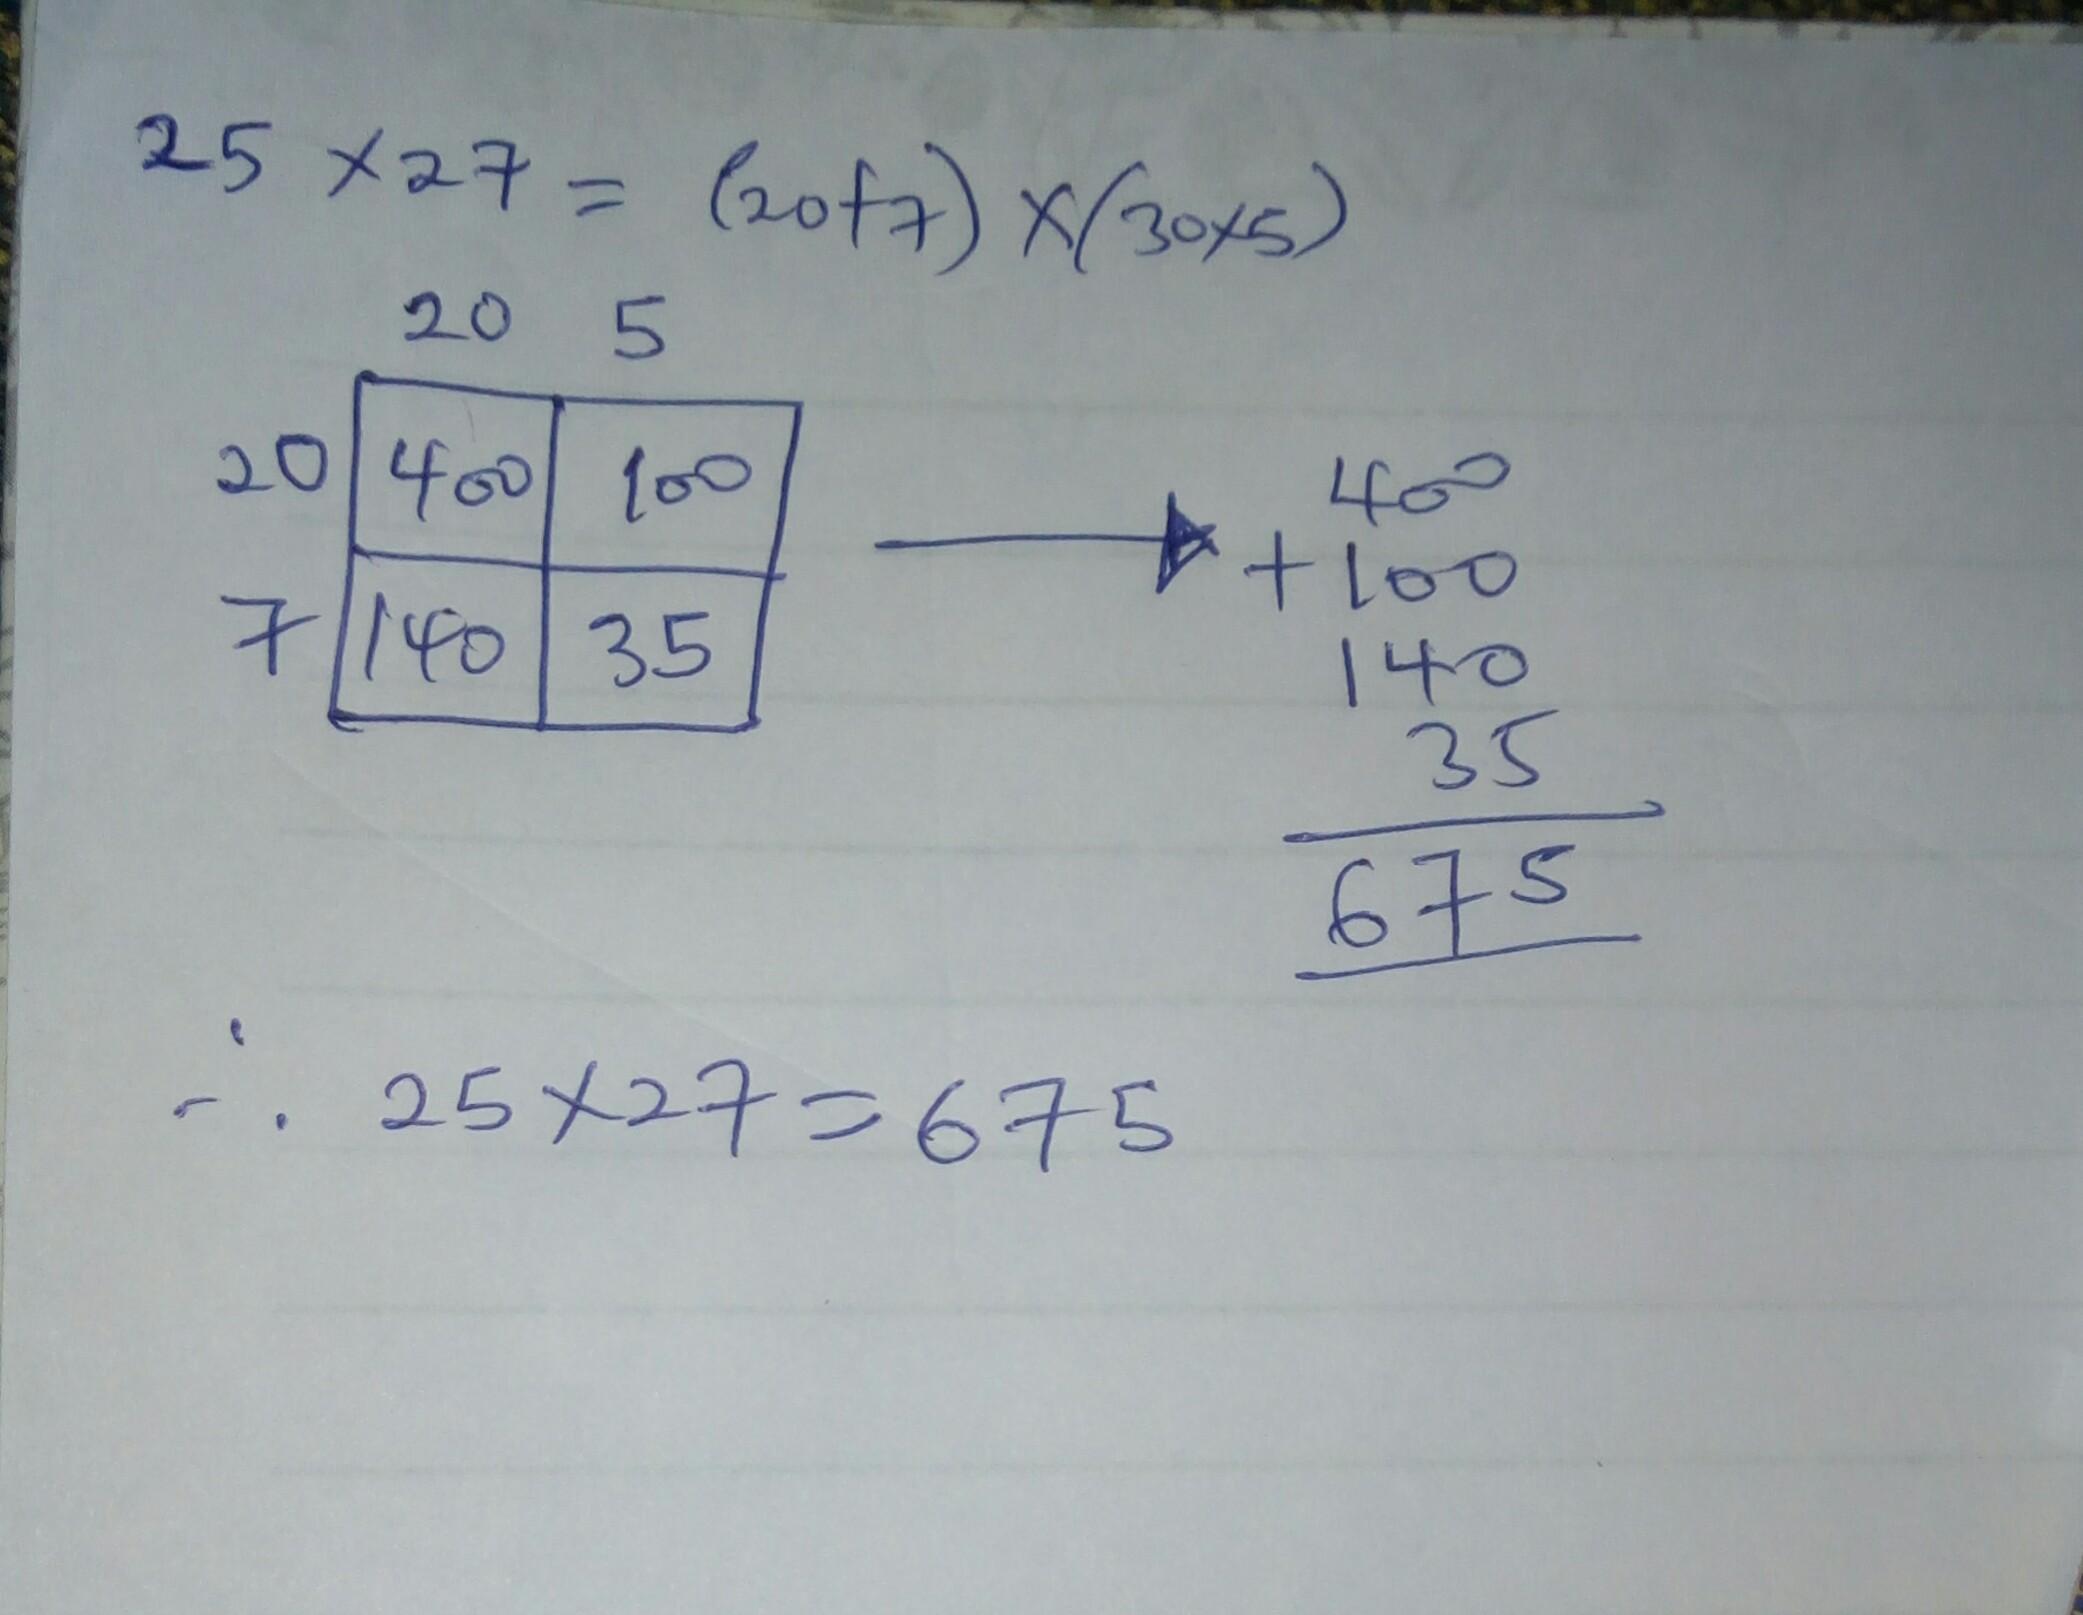 25 × 27 = (20+7) × (30×5)
20 5
20 400 100
7 140 35
400
+ 100
140
35
675
∴ 25 × 27 = 675